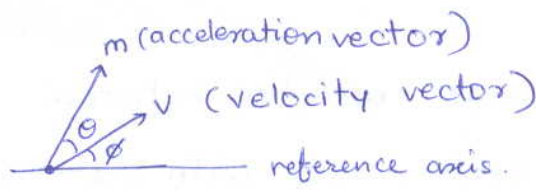 m (acceleration vector)
v (velocity vector)
θ
φ
reference axis.